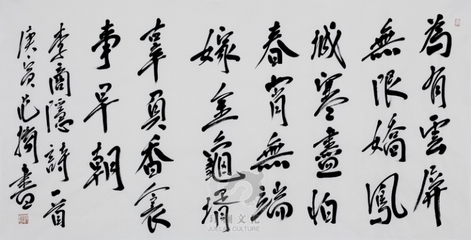 為有雲屏
無限嬌鳳
城寒盡怕
春宵無端
嫁金龜壻
辜負香衾
事早朝
李商隱詩一首
庚寅書
文化
CULTURE